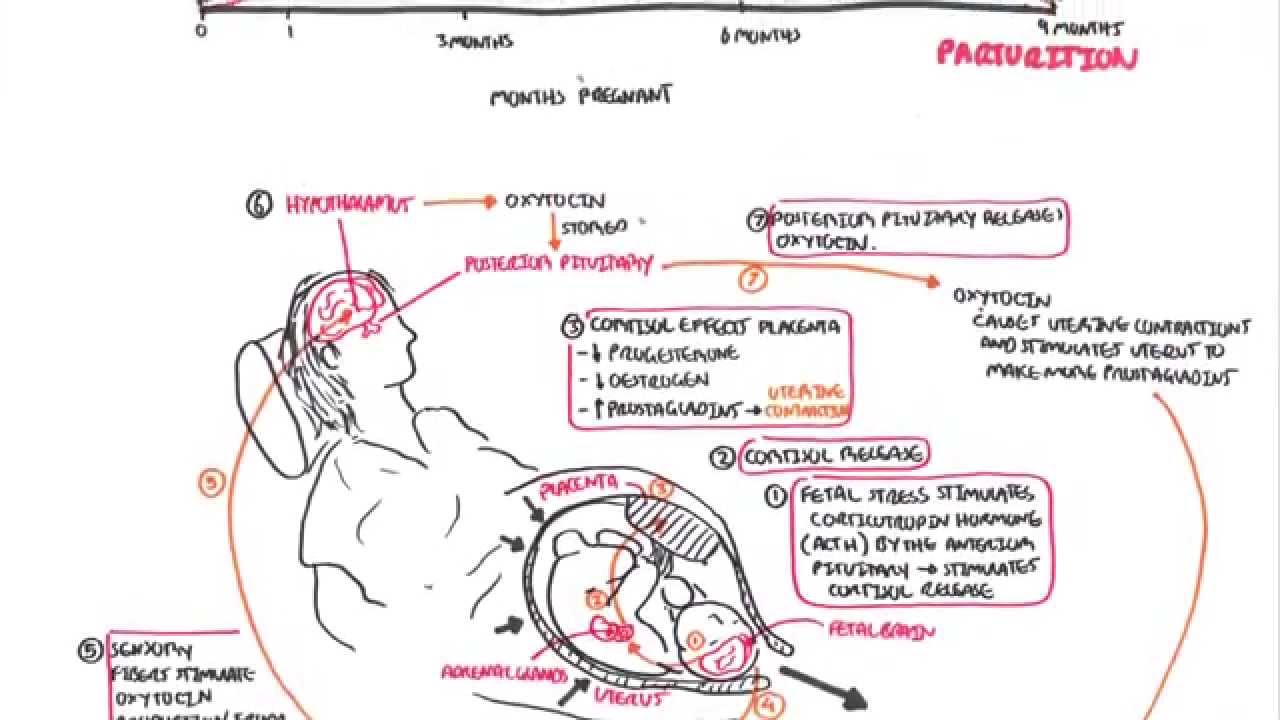 0 1 3 MONTHS 6 MONTHS 9 MONTHS
PARTURITION
MONTHS PREGNANT
6 HYPOTHALAMUS OXYTOCIN
STORED
POSTERIOR PITUITARY
7 POSTERIOR PITUITARY RELEASES
OXYTOCIN.
7
OXYTOCIN
CAUSES UTERINE CONTRACTIONS
AND STIMULATES UTERUS TO
MAKE MORE PROSTAGLADINS
3 CORTISOL EFFECTS PLACENTA
- ↓ PROGESTERONE
- ↓ OESTROGEN
- ↑ PROSTAGLADINS → UTERINE
CONTRACTION
2 CORTISOL RELEASE
1 FETAL STRESS STIMULATES
CORTICOTROPIN HORMONE
(ACTH) BY THE ANTERIOR
PITUITARY → STIMULATES
CORTISOL RELEASE
5
PLACENTA 3
2
1
FETAL BRAIN
ADRENAL GLANDS
UTERUS
4
5 SENSORY
FIBERS STIMULATE
OXYTOCIN